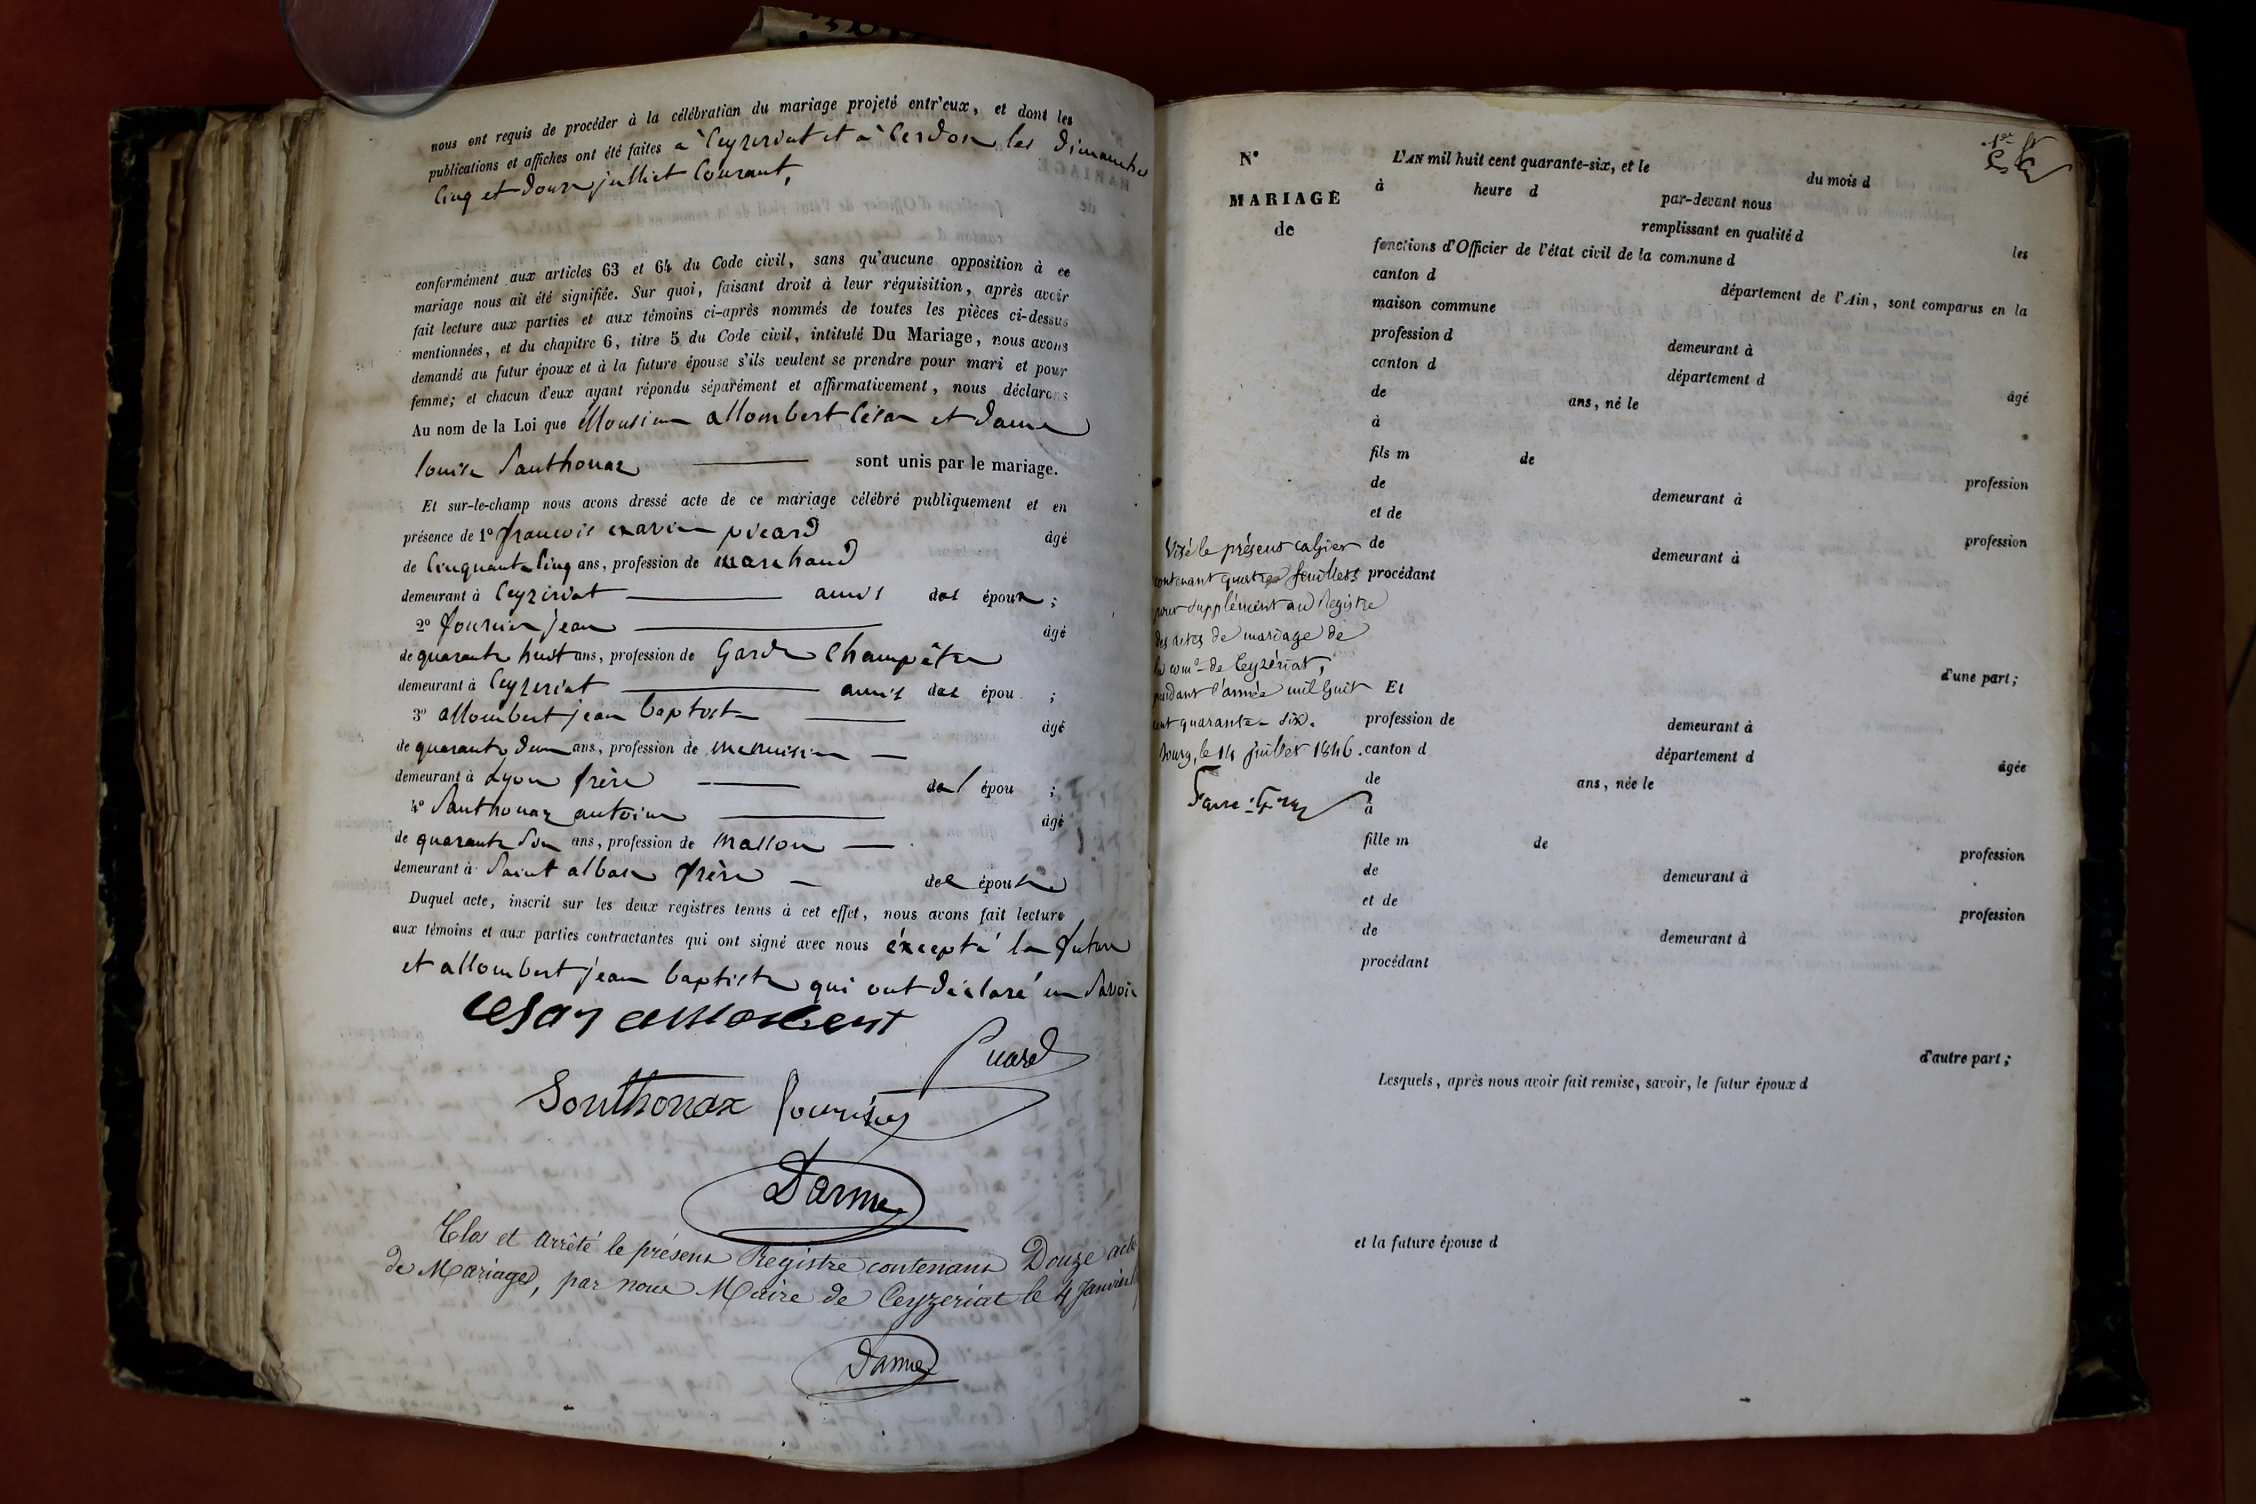 nous ont requis de procéder à la célébration du mariage projeté entr'eux, et dont les
publications et affiches ont été faites à Ceyzeriat et à Cerdon les dimanches
Cinq et douze juillet Courant,
conformément aux articles 63 et 64 du Code civil, sans qu'aucune opposition à ce
mariage nous ait été signifiée. Sur quoi, faisant droit à leur réquisition, après avoir
fait lecture aux parties et aux témoins ci-après nommés de toutes les pièces ci-dessus
mentionnées, et du chapitre 6, titre 5 du Code civil, intitulé Du Mariage, nous avons
demandé au futur époux et à la future épouse s'ils veulent se prendre pour mari et pour
femme; et chacun d'eux ayant répondu séparément et affirmativement, nous déclarons
Au nom de la Loi que Monsieur allombert César et dame
louise Santhonax sont unis par le mariage.
Et sur-le-champ nous avons dressé acte de ce mariage célébré publiquement et en
présence de 1° françois exavier picard âgé
de Cinquante Cinq ans, profession de marchand
demeurant à Ceyzeriat amis des époux ;
2° fournier jean âgé
de quarante huit ans, profession de Garde Champêtre
demeurant à Ceyzeriat amis des épou ;
3° allombert jean baptiste âgé
de quarante deux ans, profession de menuisier
demeurant à Lyon frère de l épou ;
4° Santhonax antoine âgé
de quarante deux ans, profession de masson
demeurant à Saint alban frère de l épouse
Duquel acte, inscrit sur les deux registres tenus à cet effet, nous avons fait lecture
aux témoins et aux parties contractantes qui ont signé avec nous éxcepté la future
et allombert jean baptiste qui ont déclaré ne savoir
Cesar allombert
Picard
Sonthonax fournier
Darme
Clos et arrêté le présent Registre contenant Douze actes
de Mariages, par nous Maire de Ceyzeriat le 4 Janvier
Darme
N° L'AN mil huit cent quarante-six, et le du mois d
MARIAGE à heure d par-devant nous
de remplissant en qualité d les
fonctions d'Officier de l'état civil de la commune d
canton d département de l'Ain, sont comparus en la
maison commune
profession d demeurant à
canton d département d âgé
de ans, né le
à
fils m de profession
de demeurant à
et de profession
de demeurant à
procédant
d'une part;
Visé le présent cahier
contenant quatre feuillets
pour supplément au Registre
des actes de mariage de
la com.ne de Ceyzériat,
pendant l'année mil huit
cent quarante-six.
Bourg, le 14 juillet 1846.
Et
profession de demeurant à
canton d département d âgée
de ans, née le
à
fille m de profession
de demeurant à
et de profession
de demeurant à
procédant
d'autre part;
Lesquels, après nous avoir fait remise, savoir, le futur époux d
et la future épouse d